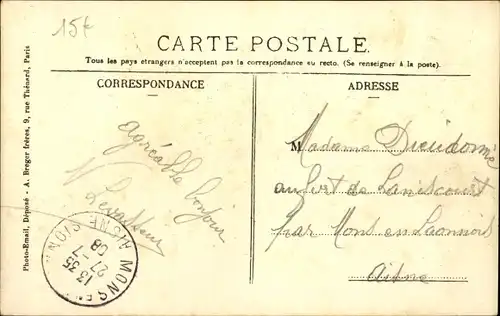 15€
CARTE POSTALE.
Tous les pays étrangers n'acceptent pas la correspondance au recto. (Se renseigner à la poste).
CORRESPONDANCE
ADRESSE
Photo-Email, Déposé - A. Breger frères, 9, rue Thénard, Paris
agréable bonjour
Levasseur
Madame Dieudonné
au fort de Laniscourt
par Mons en Laonnois
Aisne
MONS EN
AISNE
13 35
27 - 7
08